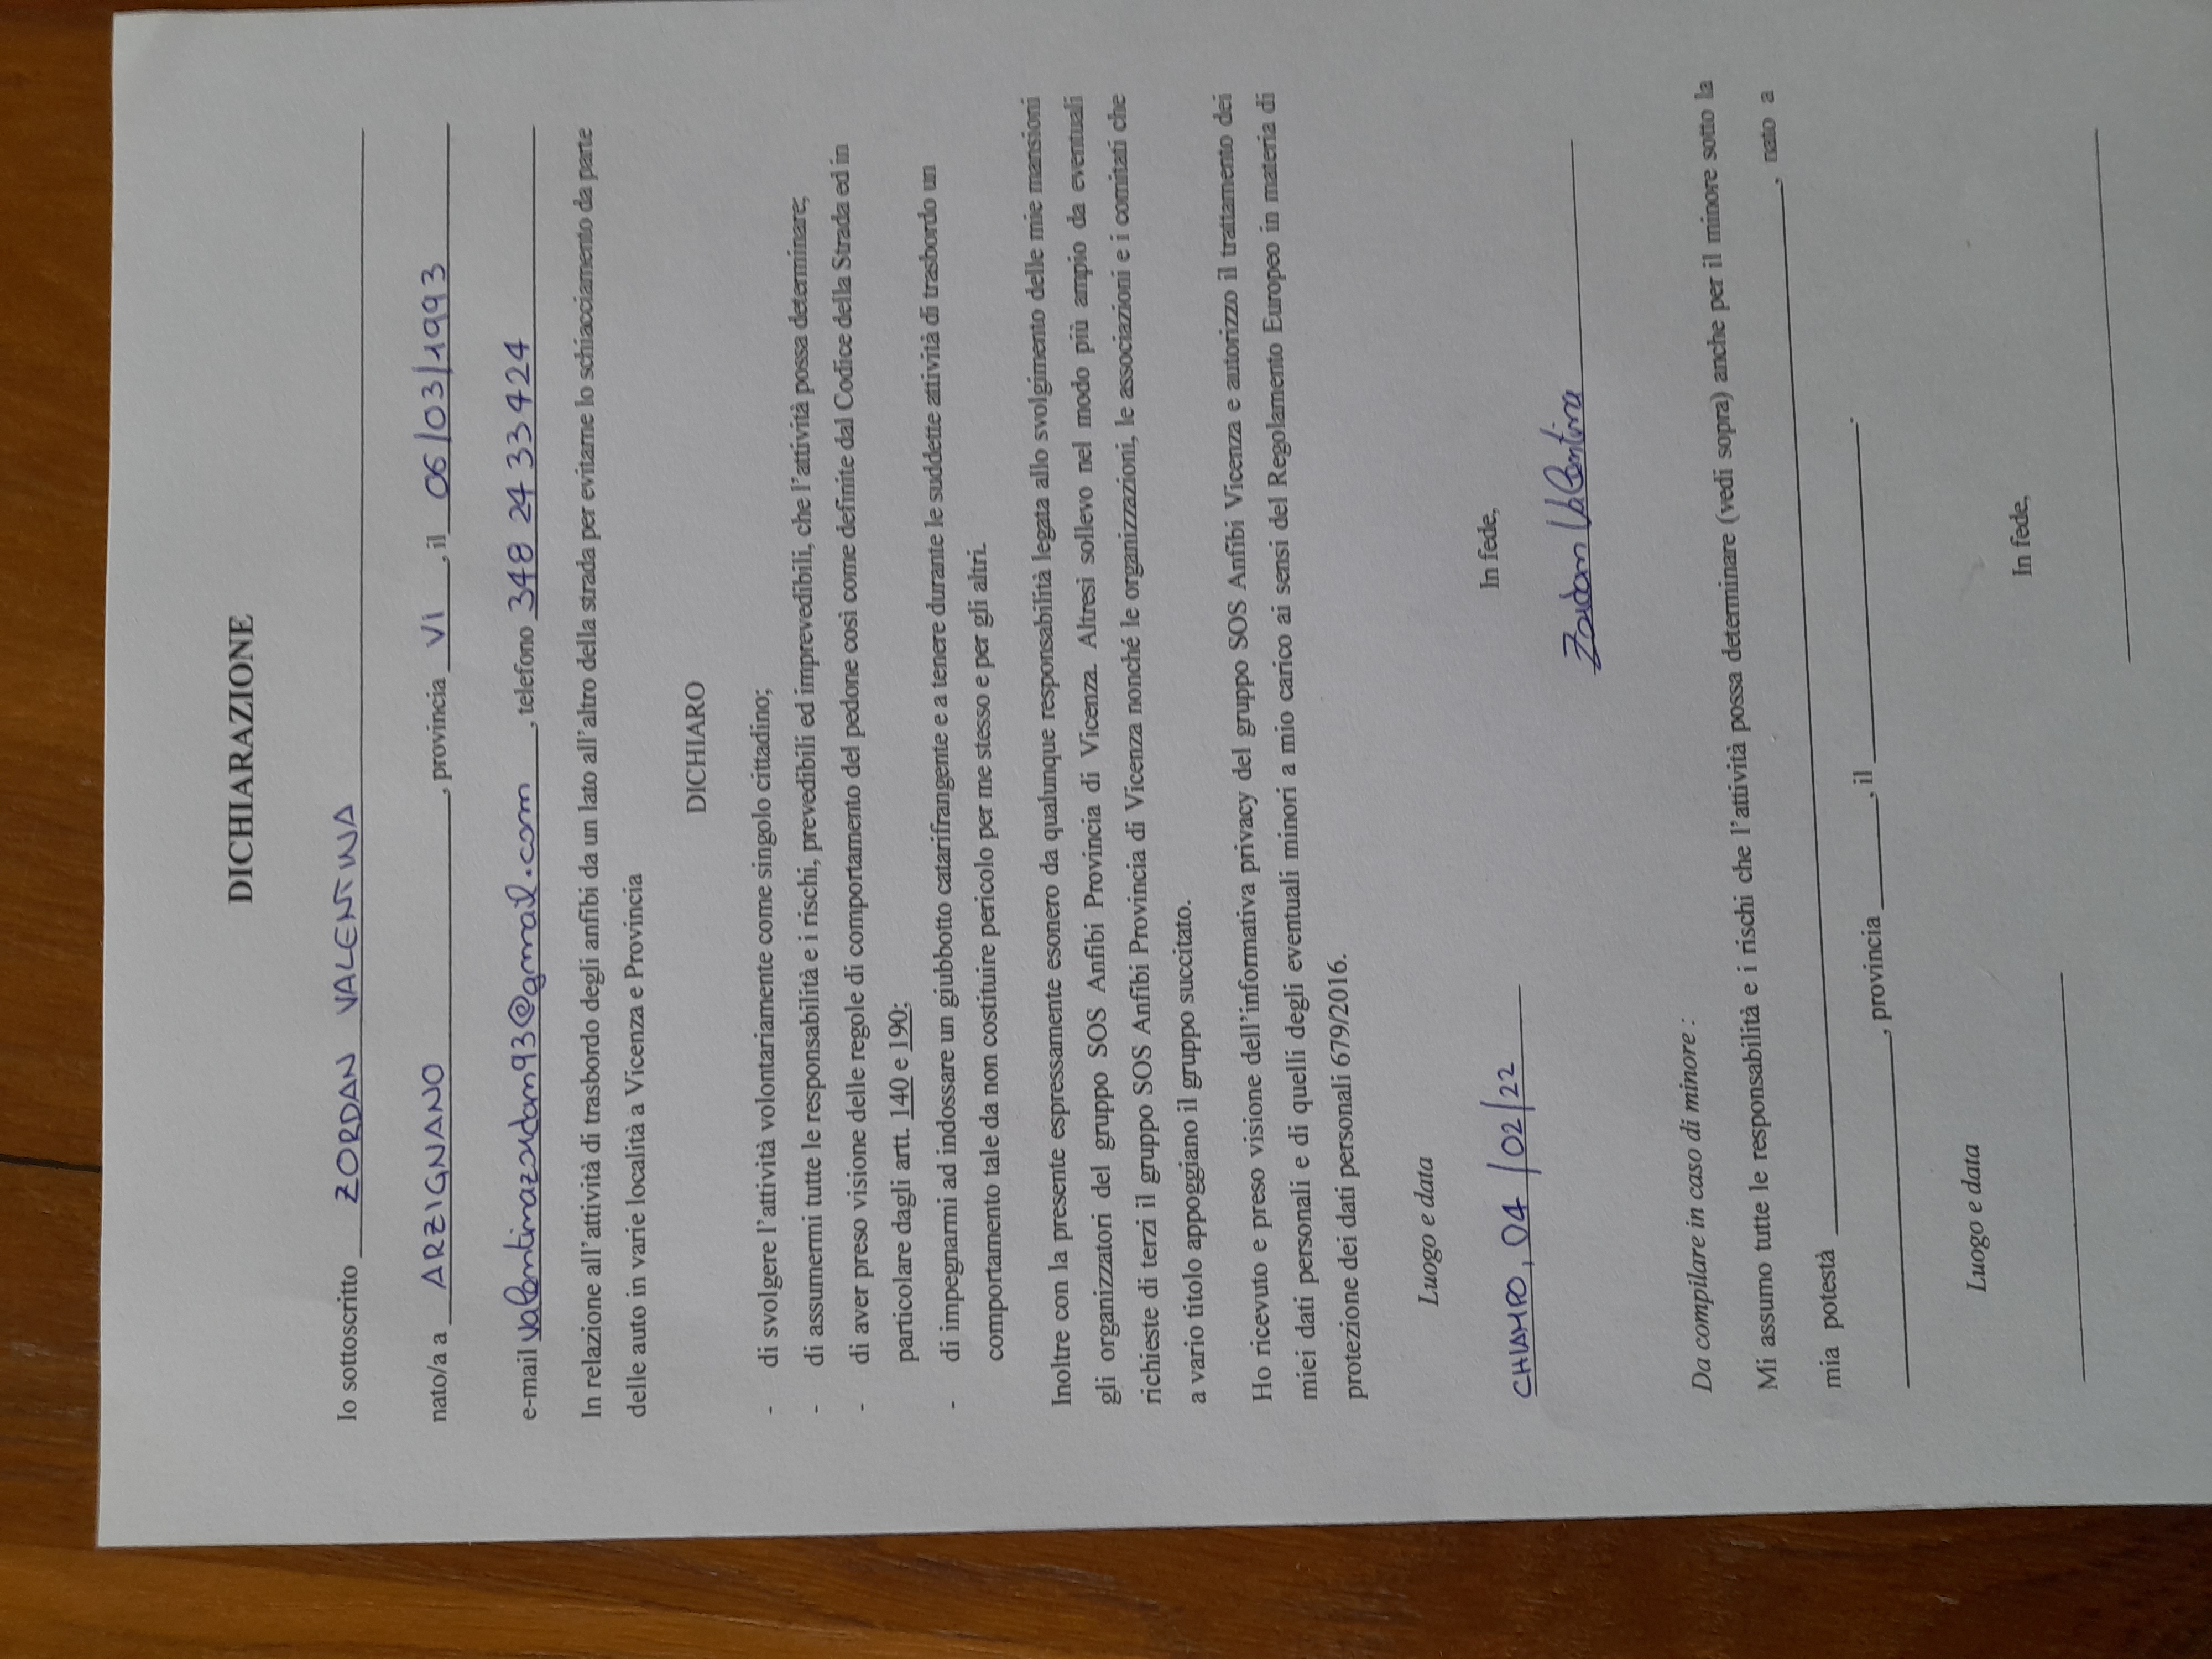 DICHIARAZIONE
Io sottoscritto ZORDAN VALENTINA
nato/a a ARZIGNANO, provincia VI, il 06/03/1993
e-mail valentinazordan93@gmail.com, telefono 348 24 33 424
In relazione all'attività di trasbordo degli anfibi da un lato all'altro della strada per evitarne lo schiacciamento da parte
delle auto in varie località a Vicenza e Provincia
DICHIARO
- di svolgere l'attività volontariamente come singolo cittadino;
- di assumermi tutte le responsabilità e i rischi, prevedibili ed imprevedibili, che l'attività possa determinare;
- di aver preso visione delle regole di comportamento del pedone così come definite dal Codice della Strada ed in
particolare dagli artt. 140 e 190;
- di impegnarmi ad indossare un giubbotto catarifrangente e a tenere durante le suddette attività di trasbordo un
comportamento tale da non costituire pericolo per me stesso e per gli altri.
Inoltre con la presente espressamente esonero da qualunque responsabilità legata allo svolgimento delle mie mansioni
gli organizzatori del gruppo SOS Anfibi Provincia di Vicenza. Altresì sollevo nel modo più ampio da eventuali
richieste di terzi il gruppo SOS Anfibi Provincia di Vicenza nonché le organizzazioni, le associazioni e i comitati che
a vario titolo appoggiano il gruppo succitato.
Ho ricevuto e preso visione dell'informativa privacy del gruppo SOS Anfibi Vicenza e autorizzo il trattamento dei
miei dati personali e di quelli degli eventuali minori a mio carico ai sensi del Regolamento Europeo in materia di
protezione dei dati personali 679/2016.
Luogo e data
In fede,
CHIAMPO, 04/02/22
Zordan Valentina
Da compilare in caso di minore :
Mi assumo tutte le responsabilità e i rischi che l'attività possa determinare (vedi sopra) anche per il minore sotto la
mia potestà , nato a
, provincia , il .
Luogo e data
In fede,